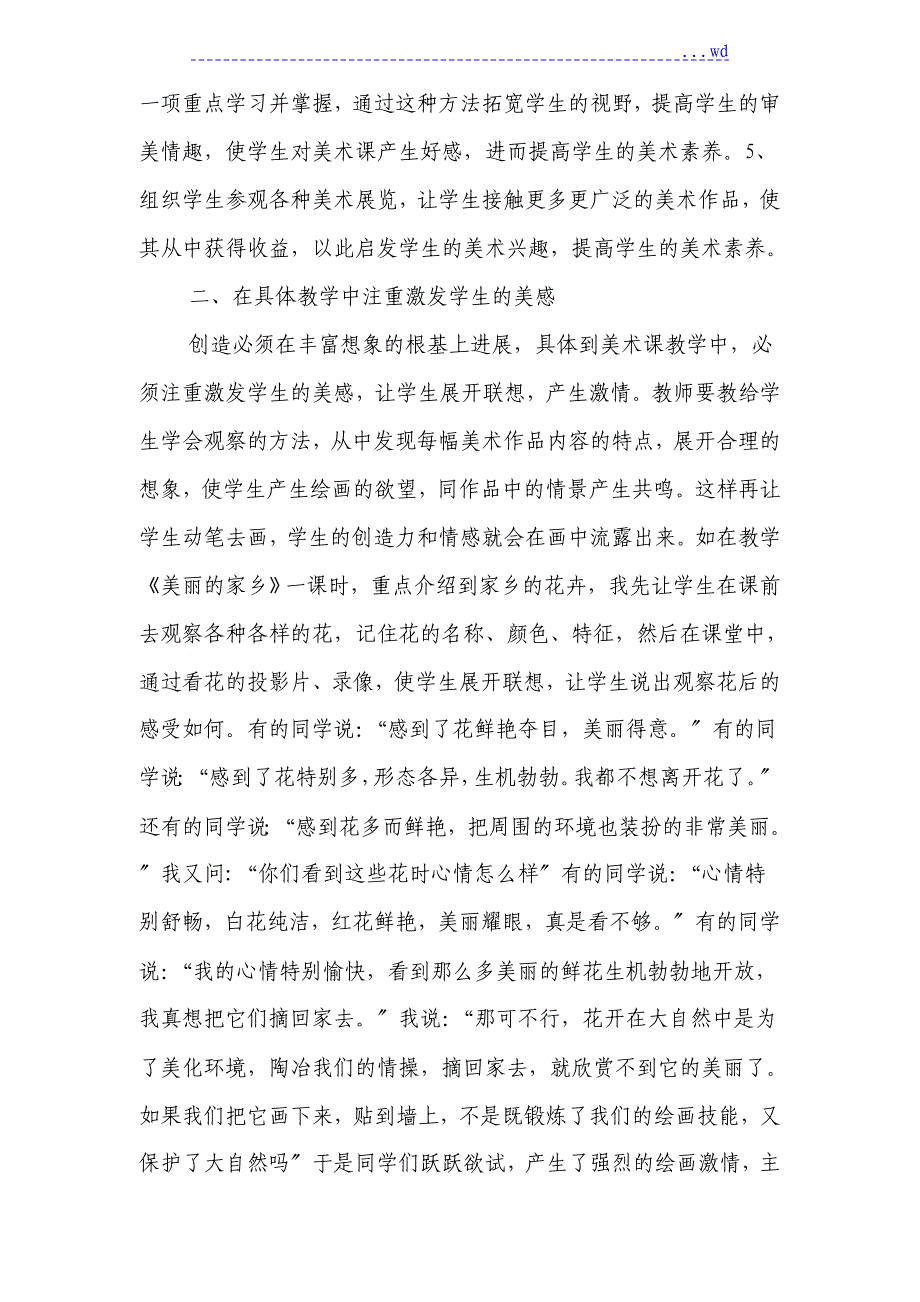 ...wd
一项重点学习并掌握，通过这种方法拓宽学生的视野，提高学生的审
美情趣，使学生对美术课产生好感，进而提高学生的美术素养。5、
组织学生参观各种美术展览，让学生接触更多更广泛的美术作品，使
其从中获得收益，以此启发学生的美术兴趣，提高学生的美术素养。
二、在具体教学中注重激发学生的美感
创造必须在丰富想象的根基上进展，具体到美术课教学中，必
须注重激发学生的美感，让学生展开联想，产生激情。教师要教给学
生学会观察的方法，从中发现每幅美术作品内容的特点，展开合理的
想象，使学生产生绘画的欲望，同作品中的情景产生共鸣。这样再让
学生动笔去画，学生的创造力和情感就会在画中流露出来。如在教学
《美丽的家乡》一课时，重点介绍到家乡的花卉，我先让学生在课前
去观察各种各样的花，记住花的名称、颜色、特征，然后在课堂中，
通过看花的投影片、录像，使学生展开联想，让学生说出观察花后的
感受如何。有的同学说：“感到了花鲜艳夺目，美丽得意。〞有的同
学说：“感到了花特别多，形态各异，生机勃勃。我都不想离开花了。〞
还有的同学说：“感到花多而鲜艳，把周围的环境也装扮的非常美丽。
〞我又问：“你们看到这些花时心情怎么样〞有的同学说：“心情特
别舒畅，白花纯洁，红花鲜艳，美丽耀眼，真是看不够。〞有的同学
说：“我的心情特别愉快，看到那么多美丽的鲜花生机勃勃地开放，
我真想把它们摘回家去。〞我说：“那可不行，花开在大自然中是为
了美化环境，陶冶我们的情操，摘回家去，就欣赏不到它的美丽了。
如果我们把它画下来，贴到墙上，不是既锻炼了我们的绘画技能，又
保护了大自然吗〞于是同学们跃跃欲试，产生了强烈的绘画激情，主